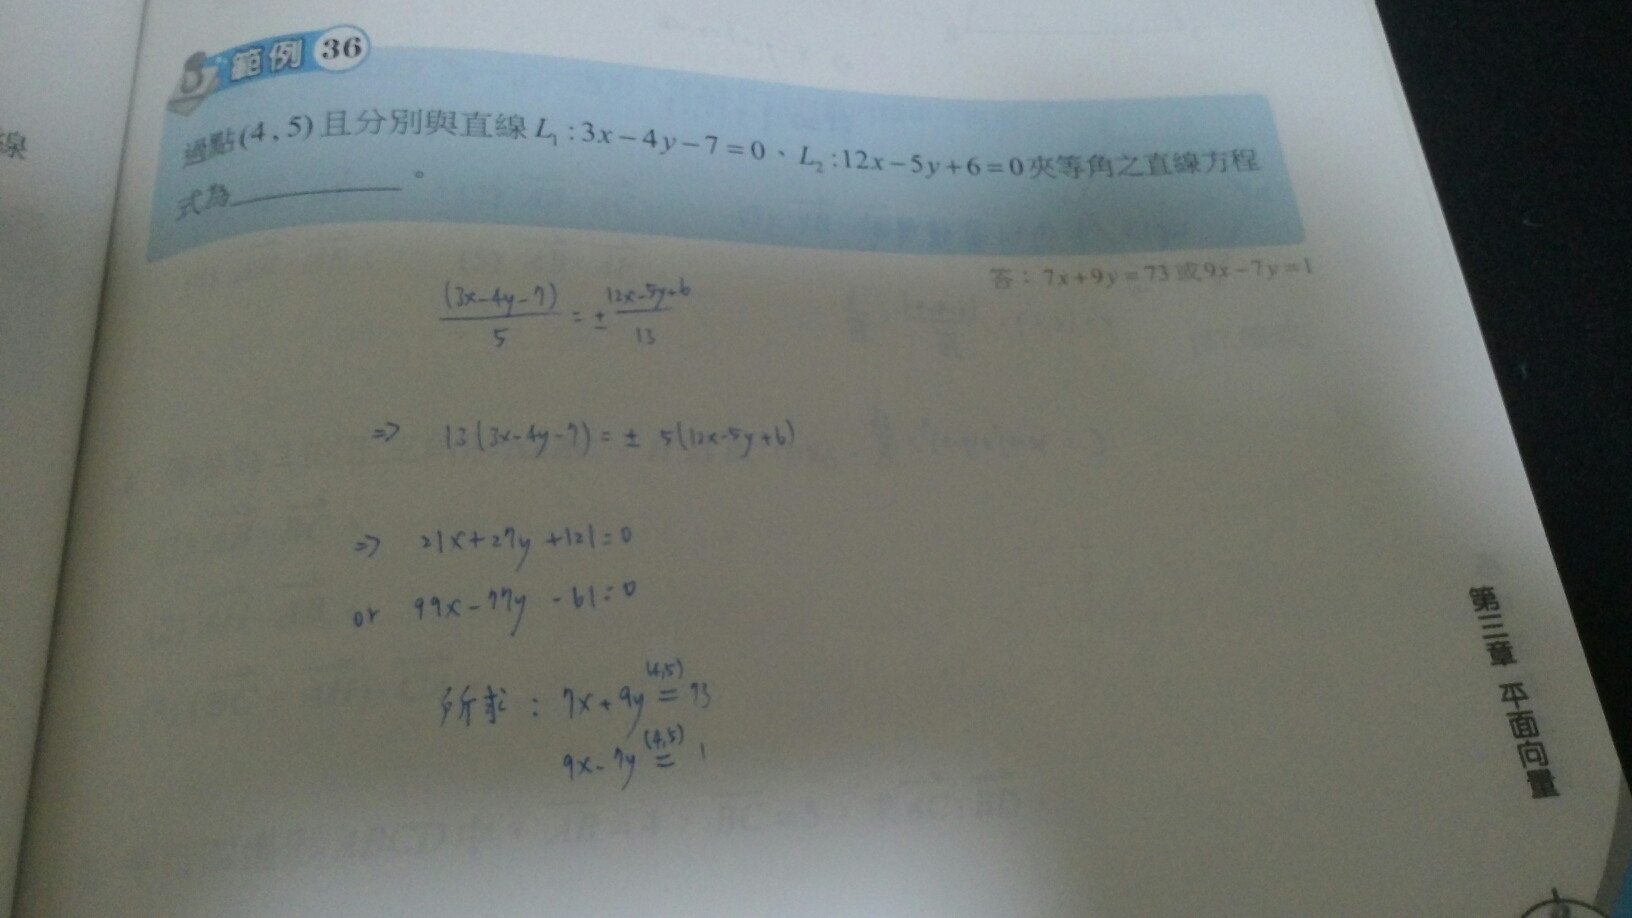 線
範例 36
過點(4,5)且分別與直線L₁:3x-4y-7=0、L₂:12x-5y+6=0夾等角之直線方程
式為________。
答:7x+9y=73或9x-7y=1
(3x-4y-7)/5 = ± 12x-5y+6/13
⇒ 13(3x-4y-7) = ± 5(12x-5y+6)
⇒ 21x+27y+121=0
or 99x-77y-61=0
所求: 7x+9y (4,5)= 73
9x-7y (4,5)= 1
第三章 平面向量